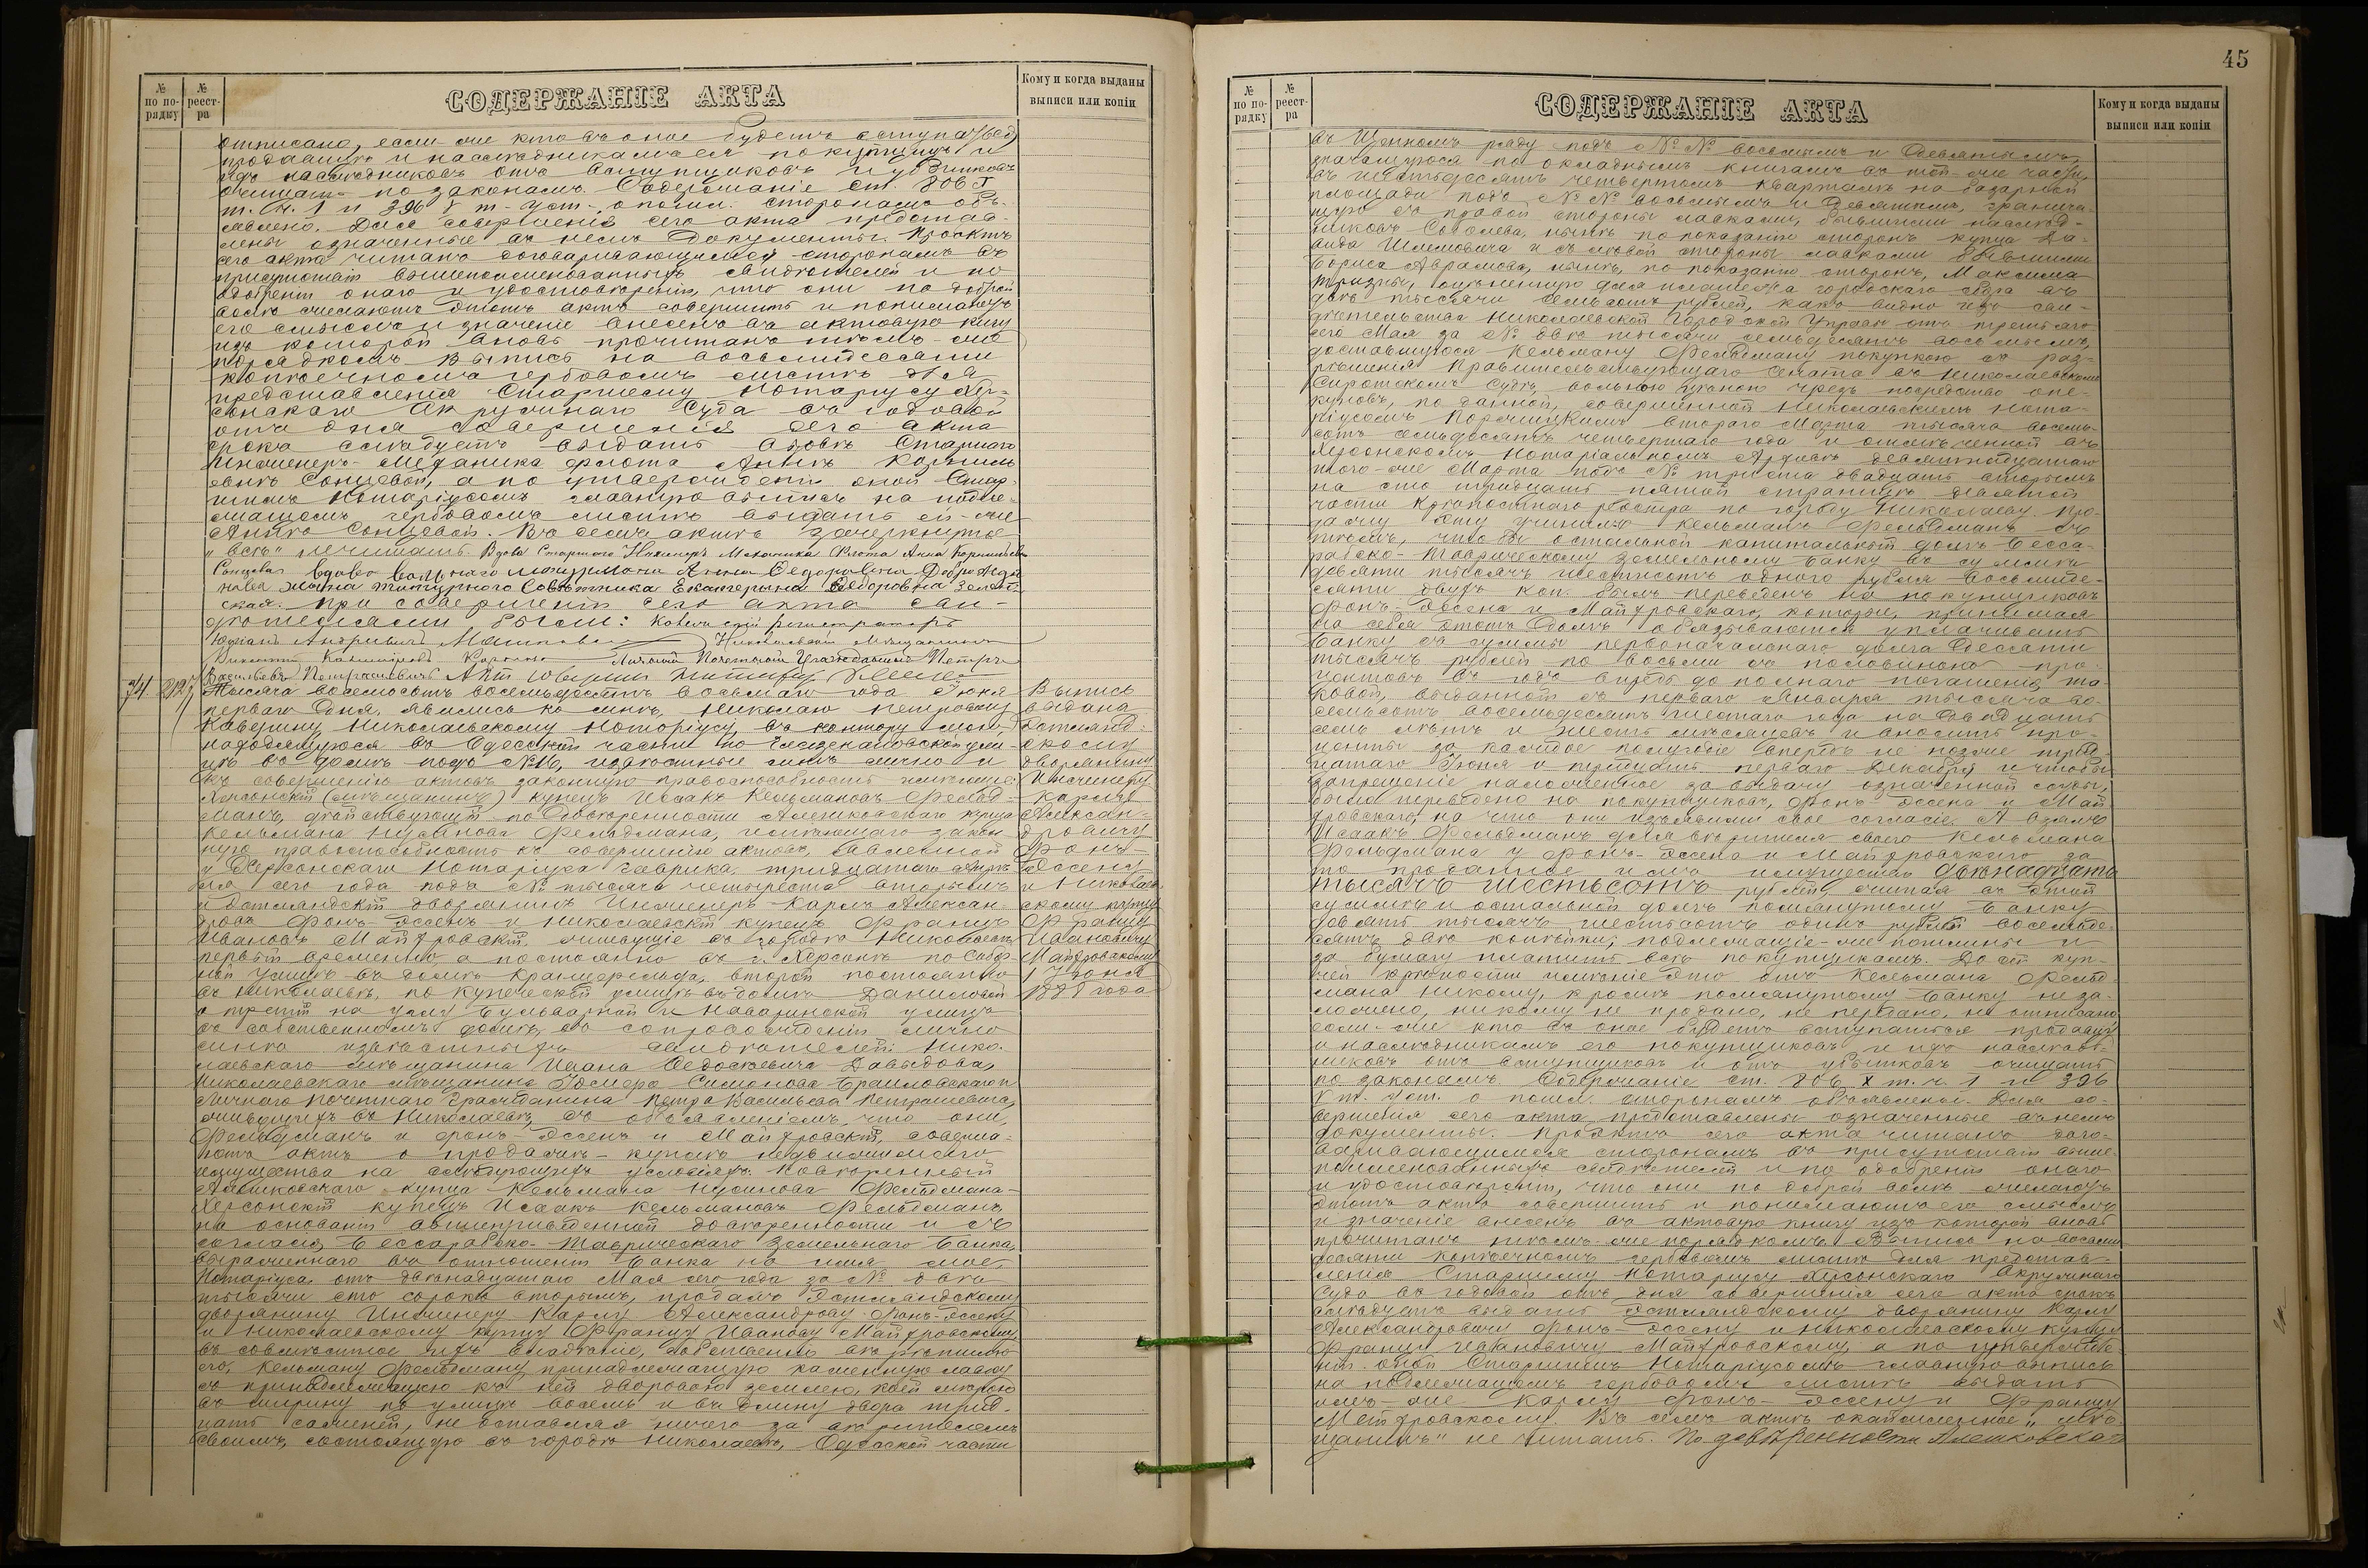 № по по-рядку
№ реест-ра
СОДЕРЖАНІЕ АКТА
Кому и когда выданы выписи или копіи
отписано, если же кто въ оное будетъ вступаться,
продавицѣ и наслѣдникамъ ея покупщицъ и
ихъ наслѣдниковъ отъ вступщиковъ и убытковъ
очищать по законамъ. Содержаніе ст. 806 X
т. ч. 1 и 396 V т. уст. о пошл. сторонамъ объ-
явлено. Для совершенія сего акта представ-
лены означенные въ немъ документы. Проэктъ
сего акта читанъ договаривающимся сторонамъ въ
присутствіи вышепоименованныхъ свидѣтелей и по
одобреніи онаго и удостовѣреніи, что они по доброй
волѣ желаютъ этотъ актъ совершить и понимаютъ
его смыслъ и значеніе внесенъ въ актовую книгу
изъ которой вновь прочитанъ тѣмъ-же
порядкомъ. Выпись на восьмидесяти
копѣечномъ гербовомъ листѣ для
представленія Старшему Нотаріусу Хер-
сонскаго Окружнаго Суда въ годовой
отъ дня совершенія сего акта
срокъ слѣдуетъ выдать вдовѣ Старшаго
Инженеръ-Механика флота Аннѣ Корниль
евнѣ Сонцевой, а по утвержденіи оной Стар-
шимъ Нотаріусомъ главную выпись на надле-
жащемъ гербовомъ листѣ выдать ей-же
Аннѣ Сонцевой. Въ семъ актѣ зачеркнутое
„всѣ" не читать. Вдова Старшаго Инженеръ Механика Флота Анна Корнильева
Сонцева
Титулярнаго Совѣтника Екатерина Ѳедоровна
При совершеніи сего акта сви-
дѣтелями были:
Личный Почетный Гражданинъ Петръ
Васильевъ Петрашевичъ
74 2127
Тысяча восемьсотъ восемьдесятъ восьмаго года Іюня
перваго дня, явились ко мнѣ, Николаю Петровичу
Каверину, Николаевскому Нотаріусу, въ контору мою,
находящуюся въ Одесской части по Глазенаповской ули-
цѣ въ домѣ подъ №16, извѣстные мнѣ лично и
къ совершенію актовъ законную правоспособность имѣющіе:
Херсонскій (мѣщанинъ) купецъ Исаакъ Кельмановъ Фельд-
манъ, дѣйствующій по довѣренности Алешковскаго купца
Кельмана Нусинова Фельдмана, имѣющаго закон-
ную правоспособность къ совершенію актовъ, явленной
у Херсонскаго Нотаріуса Гаврика тридцатаго Апрѣ-
ля сего года подъ № тысяча четыреста вторымъ
и Эстляндскій дворянинъ Инженеръ Карлъ Алексан-
дровъ фонъ-Эссенъ и Николаевскій купецъ Францъ
Ивановъ Майдровскій, живущіе въ городѣ Николаевѣ
первый временно, а постоянно въ г. Херсонѣ по Собор-
ной улицѣ въ домѣ Кранцфельда, второй постоянно
въ Николаевѣ, по Купеческой улицѣ въ домѣ Даниловой
а третій на углу Бульварной и Наваринской улицъ
въ собственномъ домѣ, въ сопровожденіи лично
мнѣ извѣстныхъ свидѣтелей: Нико-
лаевскаго мѣщанина Ивана Ѳедосѣевича Давыдова,
Николаевскаго мѣщанина Симонова Браиловскаго и
Личнаго Почетнаго Гражданина Петра Васильева Петрашевича,
живущихъ въ Николаевѣ, съ объявленіемъ, что они,
Фельдманъ и фонъ-Эссенъ и Майдровскій, соверша-
ютъ актъ о продажѣ-куплѣ недвижимаго
имущества на слѣдующихъ условіяхъ: повѣренный
Алешковскаго купца Кельмана Нусинова Фельдмана-
Херсонскій купецъ Исаакъ Кельмановъ Фельдманъ
на основаніи вышеприведенной довѣренности и съ
согласія, Бессарабско-Таврическаго Земельнаго Банка,
выраженнаго въ отношеніи Банка на имя мое,
Нотаріуса, отъ двѣнадцатаго Мая сего года за № два
тысячи сто сорокъ вторымъ, продалъ Эстляндскому
дворянину Инженеру Карлу Александрову фонъ-Эссену
и Николаевскому купцу Францу Иванову Майдровскому,
въ совмѣстное ихъ владѣніе, собственно вѣрителю
его, Кельману Фельдману, принадлежащую каменную лавку
съ принадлежащею къ ней дворовою землею, коей мѣрою
въ ширину по улицѣ восемь и въ длину двора трид-
цать саженей, не оставляя ничего за вѣрителемъ
своимъ, состоящую въ городѣ Николаевѣ, Одесской части
Выпись
выдана
Эстлянд-
скому
дворянину
Инженеру
Карлу
Алексан-
дровичу
фонъ-
Эссену
и Николаев-
скому купцу
Францу
Ивановичу
Майдровскому
1 Іюня
1888 года
45
№ по по-рядку
№ реест-ра
СОДЕРЖАНІЕ АКТА
Кому и когда выданы выписи или копіи
въ Щепномъ ряду подъ №№ восьмымъ и девятымъ,
значащуюся по окладнымъ книгамъ въ той-же части,
въ шестьдесятъ четвертомъ кварталѣ на базарной
площади подъ №№ восьмымъ и девятымъ, гранича-
щую съ правой стороны лавками, бывшими наслѣд-
никовъ Соболева, нынѣ по показанію сторонъ купца Да-
вида Шлемовича и съ лѣвой стороны лавками бывшими
Бориса Аврамова, нынѣ, по показанію сторонъ, Максима
оцѣненную для платежа городскаго сбора въ
двѣ тысячи семьсотъ рублей, какъ видно изъ сви-
дѣтельства Николаевской Городской Управы отъ третьяго
сего Мая за № двѣ тысячи семьдесятъ восьмымъ,
доставшуюся Кельману Фельдману покупкою съ раз-
рѣшенія Правительствующаго Сената въ Николаевскомъ
Сиротскомъ Судѣ, вольною цѣною чрезъ посредство опе-
куновъ, по данной, совершенной Николаевскимъ Нота-
ріусомъ Корчицкимъ втораго Марта тысяча восемь-
сотъ семьдесятъ четвертаго года и отмѣченной въ
Херсонскомъ Нотаріальномъ Архивѣ девятнадцатаго
того-же Марта подъ № триста двадцать вторымъ
на сто тридцать пятой страницѣ девятой
части Крѣпостнаго реестра по городу Николаеву. Про-
дажу эту учинилъ Кельманъ Фельдманъ съ
тѣмъ, чтобы остальной капитальный долгъ Бесса-
рабско-Таврическому Земельному Банку въ суммѣ
девяти тысячъ шестисотъ одного рубля восьмиде-
сяти двухъ коп. былъ переведенъ на покупщиковъ
фонъ-Эссена и Майдровскаго, которые, принимая
на себя этотъ долгъ обязываются уплачивать
Банку съ суммы первоначальнаго долга десяти
тысячъ рублей по восьми съ половиною про-
центовъ въ годъ впредь до полнаго погашенія, та-
ковой, выданной съ перваго Января тысяча во-
семьсотъ восемьдесятъ шестаго года на двадцать
семь лѣтъ и шесть мѣсяцевъ и вносить про-
центы за каждое полугодіе впередъ не позже трид-
цатаго Іюня и тридцать перваго Декабря и чтобы
запрещеніе наложенное за выдачу означенной ссуды,
было переведено на покупщиковъ, фонъ-Эссена и Май-
дровскаго, на что они изъявили свое согласіе. А взялъ
Исаакъ Фельдманъ для вѣрителя своего Кельмана
Фельдмана у фонъ-Эссена и Майдровскаго за
то проданное имъ имущество двѣнадцать
тысячъ шестьсотъ рублей, считая въ этой
суммѣ и остальной долгъ помянутому Банку
девять тысячъ шестьсотъ одинъ рубль восемьде-
сятъ двѣ копѣйки; подлежащіе-же пошлины и
за бумагу платить всѣ покупщикамъ. До сей куп-
чей крѣпости имѣніе это отъ Кельмана Фельд-
мана никому, кромѣ помянутому Банку не за-
ложено, никому не продано, не передано, не отписано,
если-же кто въ оное будетъ вступаться продавцу
и наслѣдникамъ его покупщиковъ и ихъ наслѣд-
никовъ отъ вступщиковъ и отъ убытковъ очищать
по законамъ. Содержаніе ст. 806 X т. ч. 1 и 396
V т. уст. о пошл. сторонамъ объявлены. Для со-
вершенія сего акта представлены означенные въ немъ
документы. Проэктъ сего акта читанъ дого-
варивающимся сторонамъ въ присутствіи выше-
поименованныхъ свидѣтелей и по одобреніи онаго
и удостовѣреніи, что они по доброй волѣ желаютъ
этотъ актъ совершить и понимаютъ его смыслъ
и значеніе внесенъ въ актовую книгу изъ которой вновь
прочитанъ тѣмъ-же порядкомъ. Выпись на восьми-
десяти копѣечномъ гербовомъ листѣ для представ-
ленія Старшему Нотаріусу Херсонскаго Окружнаго
Суда въ годовой отъ дня совершенія сего акта срокъ
слѣдуетъ выдать Эстляндскому дворянину Карлу
Александровичу фонъ-Эссену и Николаевскому купцу
Францу Ивановичу Майдровскому, а по утвержде-
ніи оной Старшимъ Нотаріусомъ главную выпись
на надлежащемъ гербовомъ листѣ выдать
имъ-же Карлу фонъ-Эссену и Францу
Майдровскому. Въ семъ актѣ окаймленное „мѣ-
щанинъ" не читать. По довѣренности Алешковскаго